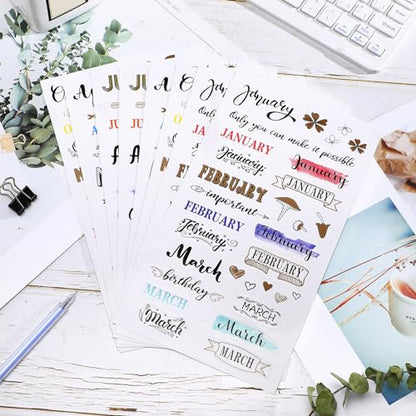 January
Only you can make it possible
JANUARY
January
January
JANUARY
FEBRUARY
important
FEBRUARY
February
February
FEBRUARY
March
birthday
MARCH
MARCH
March
March
MARCH